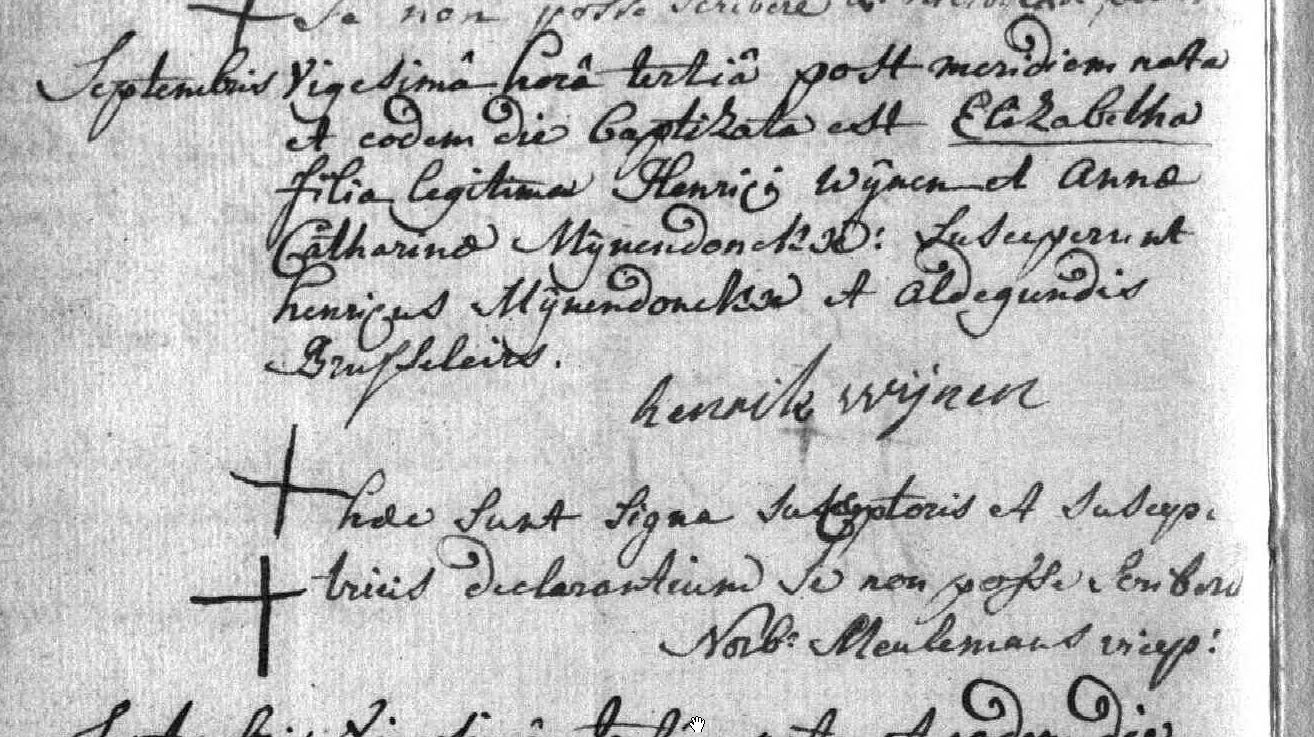 Se non posse scribere
Septembris Vigesimâ horâ tertiâ post meridiem nata
et eodem die baptizata est Elizabetha
filia legitima Henrici Wÿnen et Annæ
Catharinæ Mÿnendonckx: Susceperunt
henricus Mÿnendonckx et Aldegundis
Brusseleirs.
henrik wijnen
hæc sunt signa susceptoris et suscep:
tricis declarantium se non posse scribere
Norb: Meulemans vicep:
Septembris Vigesimâ tertiâ nata et eodem die